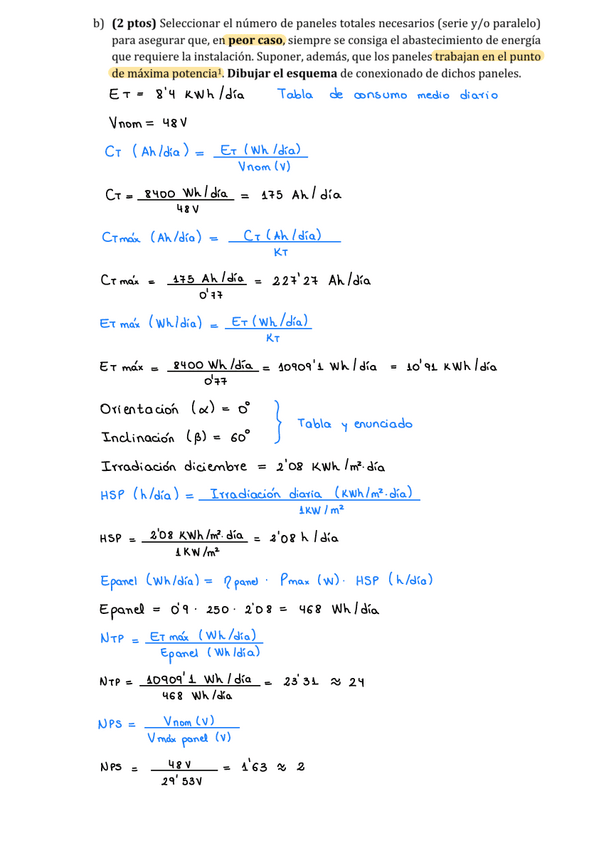 b) (2 ptos) Seleccionar el número de paneles totales necesarios (serie y/o paralelo)
para asegurar que, en peor caso, siempre se consiga el abastecimiento de energía
que requiere la instalación. Suponer, además, que los paneles trabajan en el punto
de máxima potencia¹. Dibujar el esquema de conexionado de dichos paneles.
ET = 8'4 KWh/día Tabla de consumo medio diario
Vnom = 48V
CT (Ah/día) = ET (Wh/día) / Vnom (V)
CT = 8400 Wh/día / 48V = 175 Ah/día
CTmáx (Ah/día) = CT (Ah/día) / KT
CTmáx = 175 Ah/día / 0'77 = 227'27 Ah/día
ET máx (Wh/día) = ET (Wh/día) / KT
ET máx = 8400 Wh/día / 0'77 = 10909'1 Wh/día = 10'91 KWh/día
Orientación (α) = 0°
Inclinación (β) = 60°
Tabla y enunciado
Irradiación diciembre = 2'08 KWh/m²·día
HSP (h/día) = Irradiación diaria (KWh/m²·día) / 1KW/m²
HSP = 2'08 KWh/m²·día / 1KW/m² = 2'08 h/día
Epanel (Wh/día) = η panel · Pmax (W) · HSP (h/día)
Epanel = 0'9 · 250 · 2'08 = 468 Wh/día
NTP = ET máx (Wh/día) / Epanel (Wh/día)
NTP = 10909'1 Wh/día / 468 Wh/día = 23'31 ≈ 24
NPS = Vnom (V) / Vmáx panel (V)
NPS = 48V / 29'53V = 1'63 ≈ 2